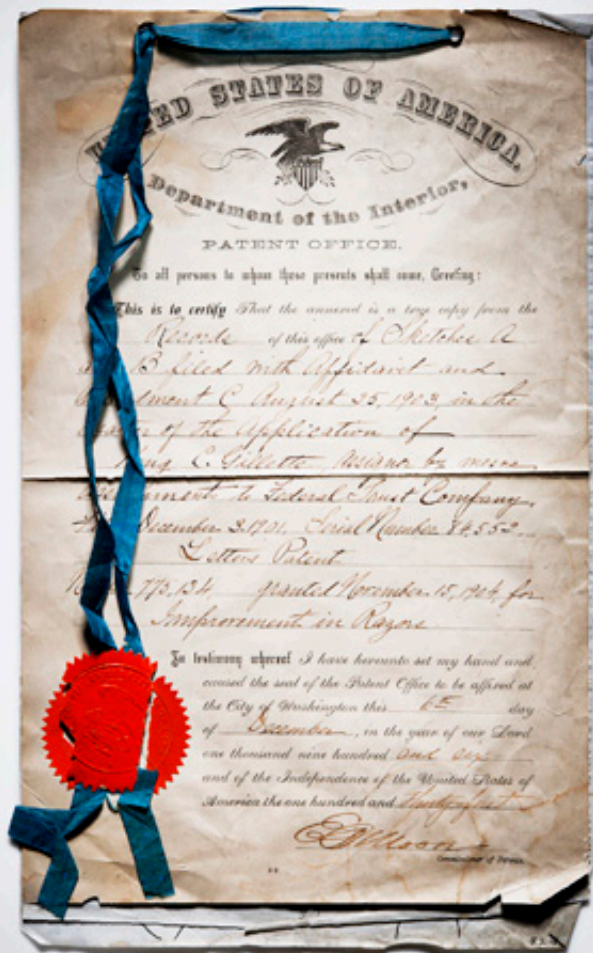 UNITED STATES OF AMERICA,
Department of the Interior,
PATENT OFFICE.
To all persons to whom these presents shall come, Greeting:
This is to certify That the annexed is a true copy from the
Records of this office of Sketches A
B filed with Affidavit and
August 25, 1903, in the
of the Application of
King C. Gillette, assignor by mesne
to Federal Trust Company,
December 3, 1901, Serial Number 84,552
Letters Patent
775,134, granted November 15, 1904, for
Improvement in Razors
In testimony whereof I have hereunto set my hand and
caused the seal of the Patent Office to be affixed at
the City of Washington this 6th day
of December, in the year of our Lord
one thousand nine hundred and six
and of the Independence of the United States of
America the one hundred and
Commissioner of Patents.